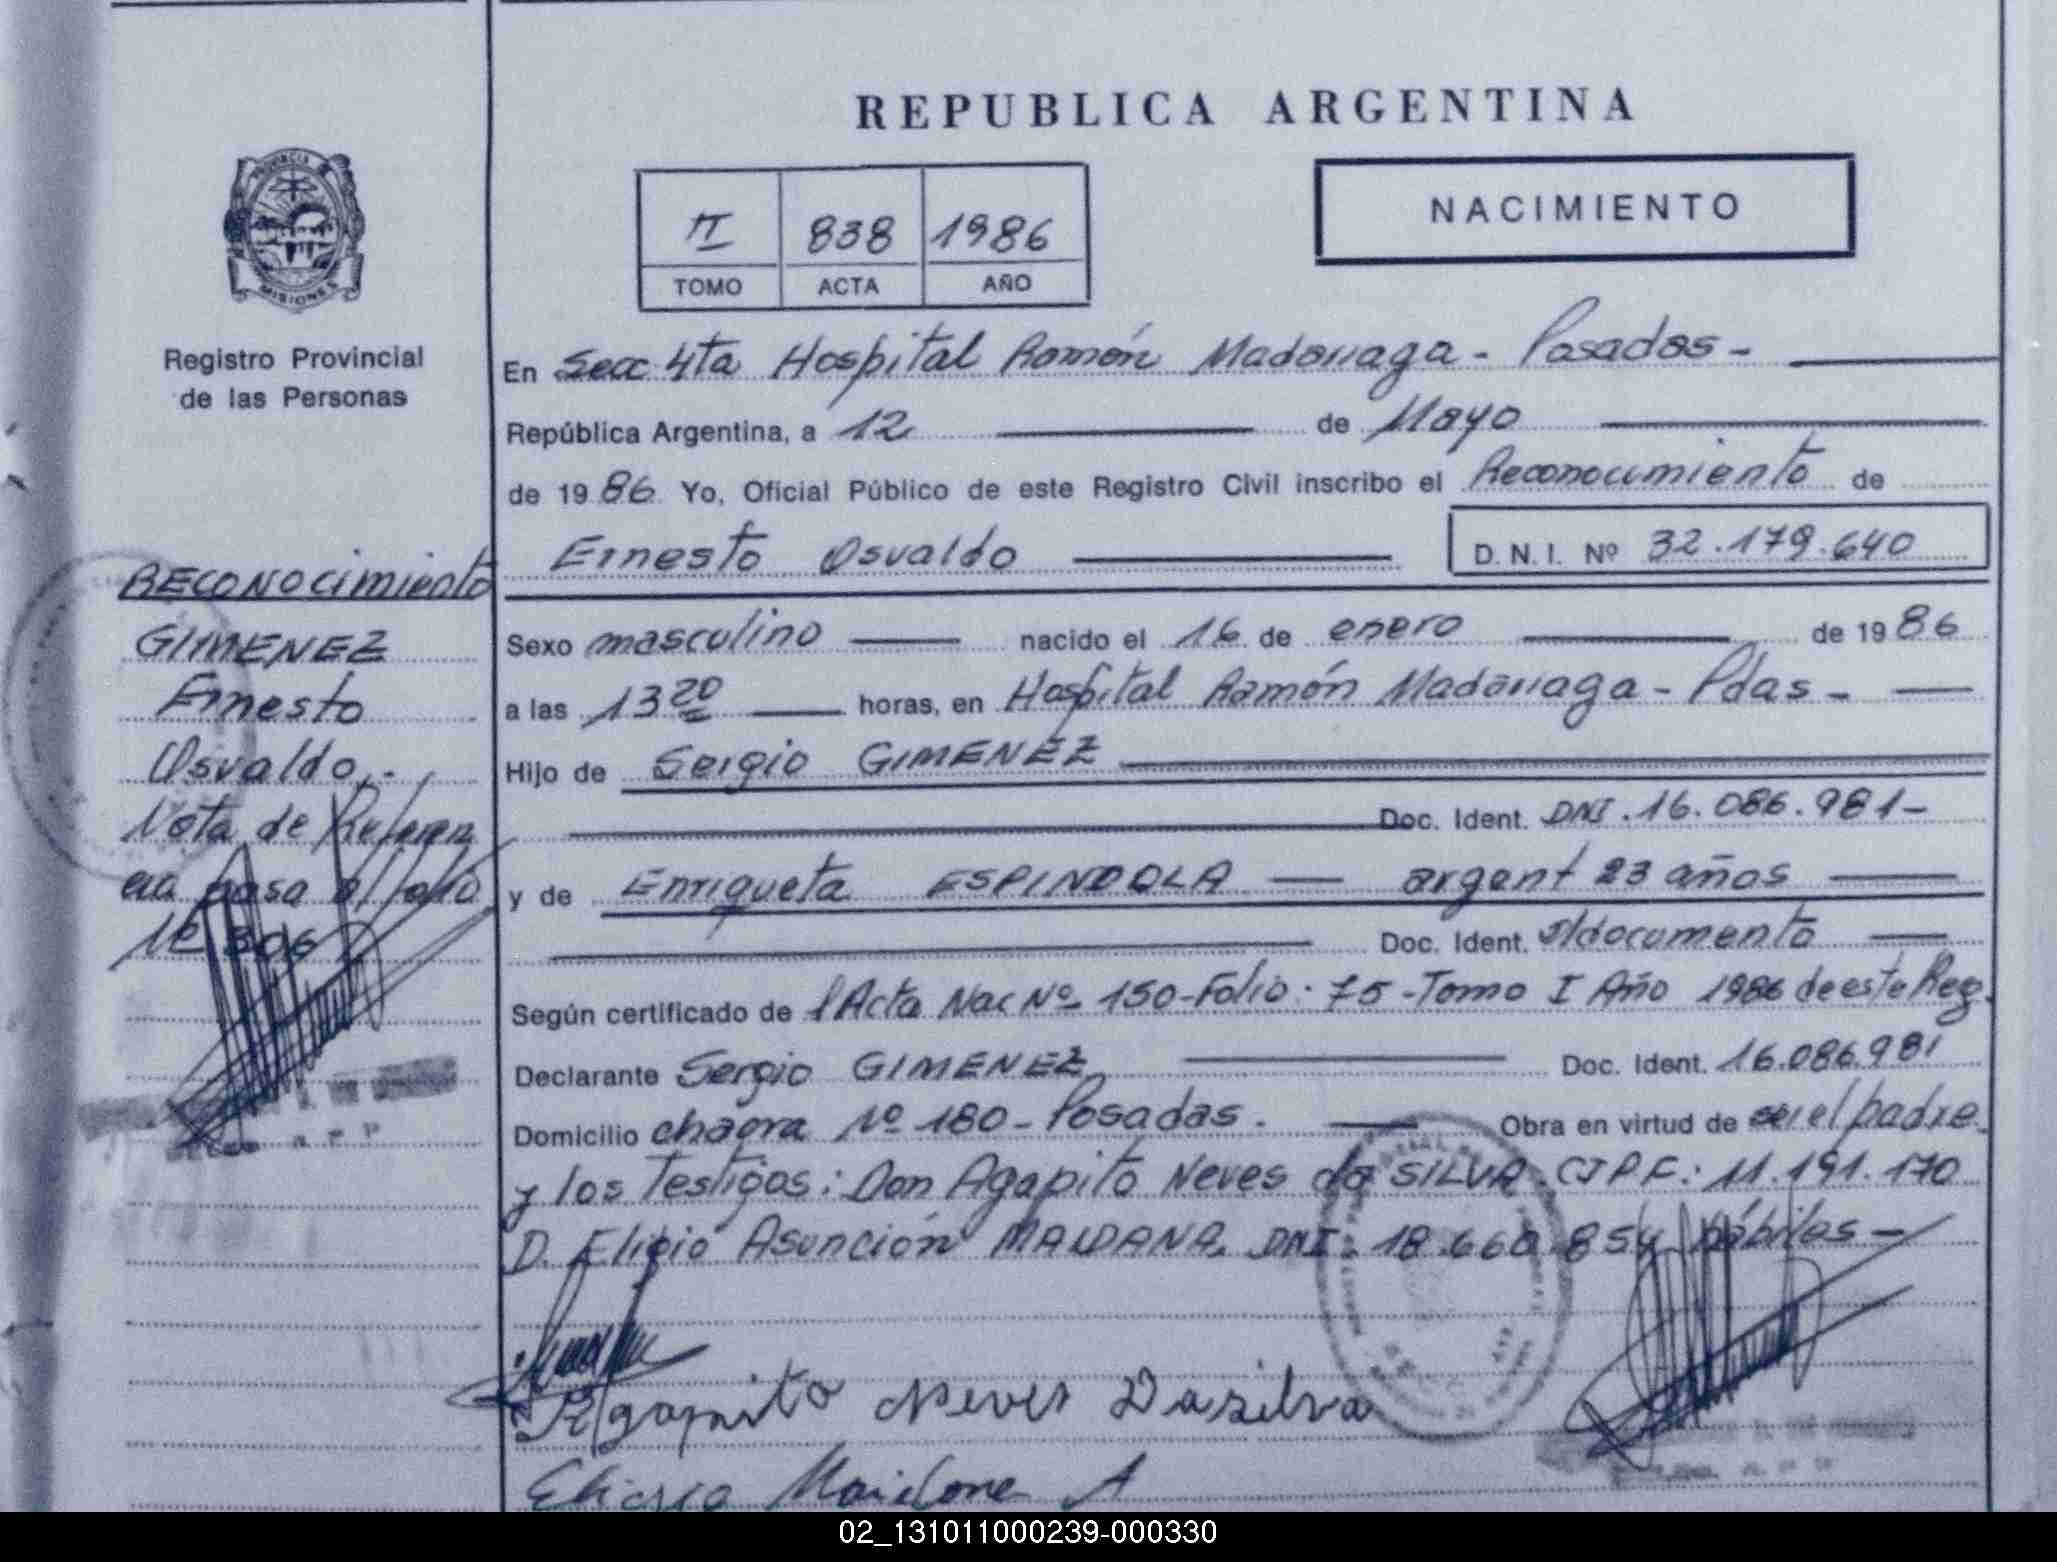 REPUBLICA ARGENTINA
PROVINCIA DE
MISIONES
Registro Provincial
de las Personas
II 838 1986
TOMO ACTA AÑO
NACIMIENTO
En Secc 4ta Hospital Ramón Madariaga - Posadas -
República Argentina, a 12 de Mayo
de 1986 Yo, Oficial Público de este Registro Civil inscribo el Reconocimiento de
Ernesto Osvaldo D. N. I. Nº 32.179.640
RECONOCIMIENTO
GIMENEZ
Ernesto
Osvaldo.-
Nota de Referen
cia pasa al folio
Nº 306
Sexo masculino nacido el 16 de enero de 1986
a las 13 20 horas, en Hospital Ramón Madariaga - Pdas -
Hijo de Sergio GIMENEZ
Doc. Ident. DNI. 16.086.981-
y de Enriqueta ESPINDOLA — argent 23 años
Doc. Ident. s/documento
Según certificado de l'Acta Nac Nº 150-Folio: 75-Tomo I Año 1986 de este Reg.
Declarante Sergio GIMENEZ Doc. Ident. 16.086.981
Domicilio chacra Nº 180-Posadas. Obra en virtud de ser el padre
y los Testigos: Don Agapito Neves da SILVA. CJPF: 11.191.170
D. Eligio Asunción MAIDANA. DNI. 18.660.854 hábiles -
Agapito Neves Dasilva
A
02_131011000239-000330